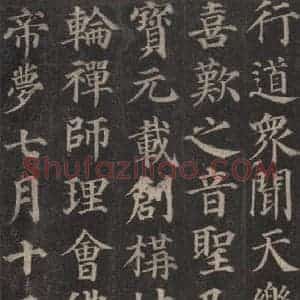 行道衆聞天樂
喜歎之音聖
寶元載創構
輪禪師理會佛
帝夢七月十
Shufaziliao.COM